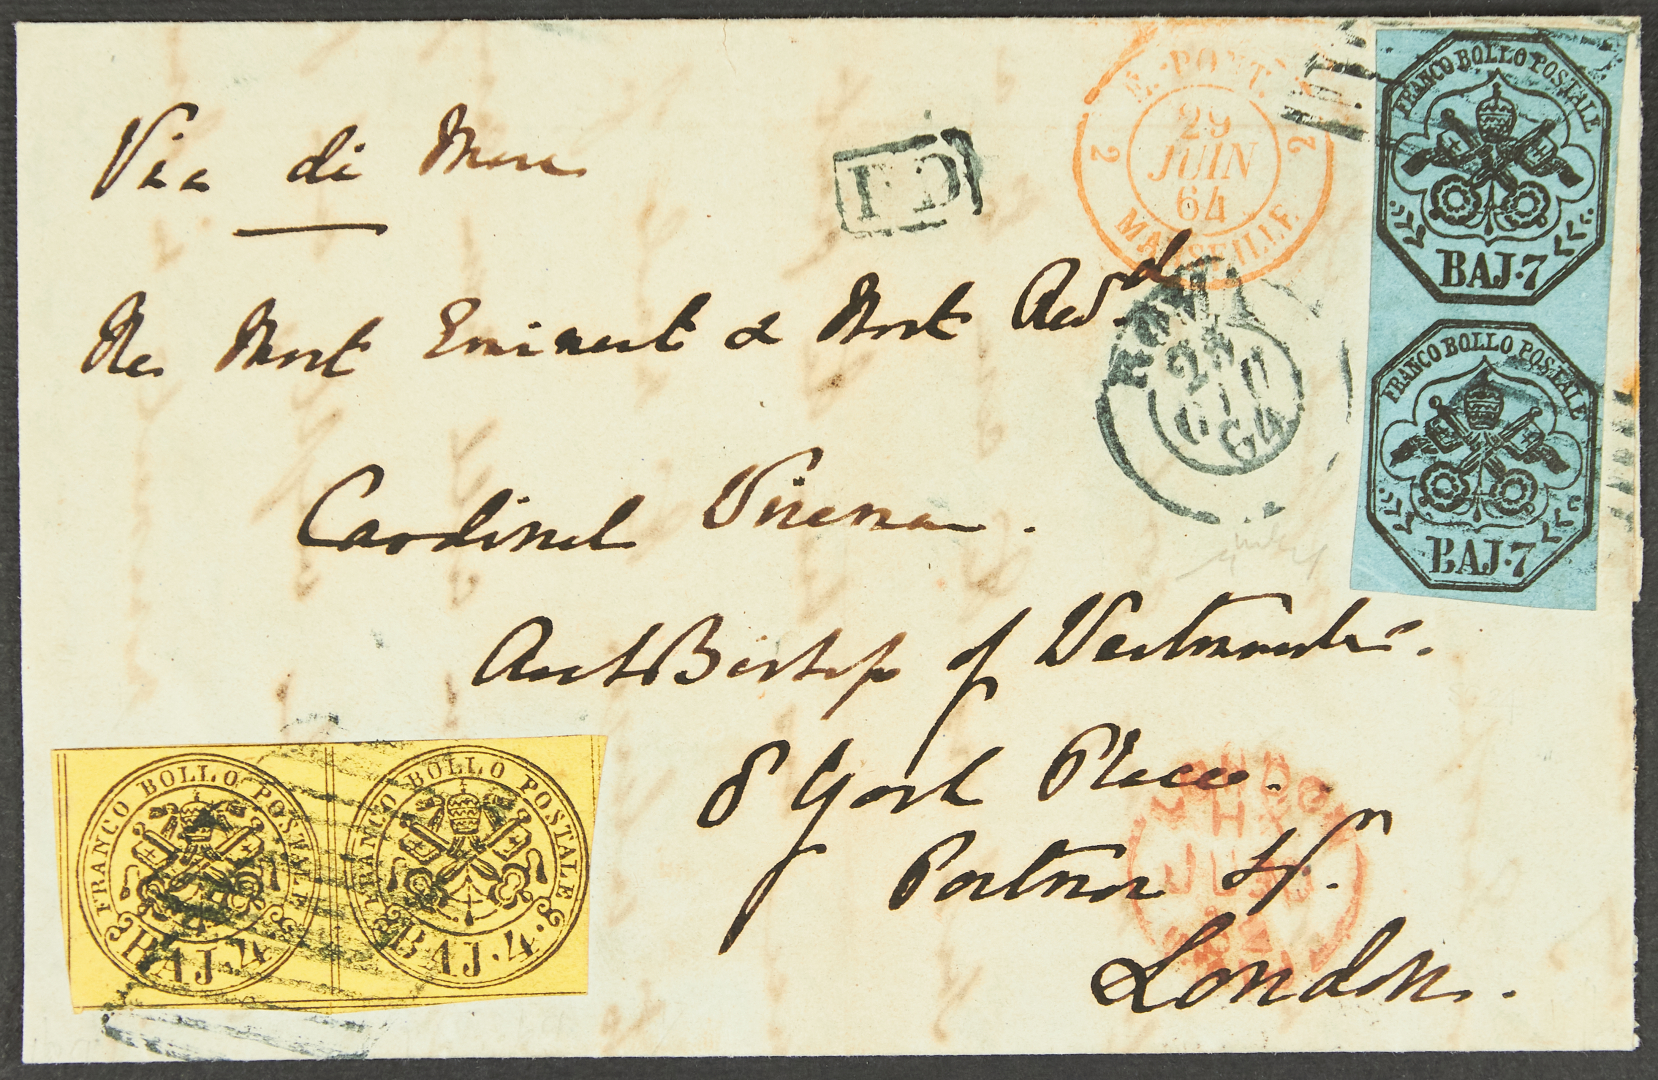 Via di Mare
P.D
E. PONT.
2 29 2
JUIN
64
MARSEILLE
FRANCO BOLLO POSTALE
BAJ·7
FRANCO BOLLO POSTALE
BAJ·7
ROMA
28
GIU
64
His Most Eminent & Most Revd
Cardinal
ArchBishop of Westminster.
8 York Place.
Portman Sqr.
London.
LONDON
FRANCO BOLLO POSTALE
BAJ·4
FRANCO BOLLO POSTALE
BAJ·4